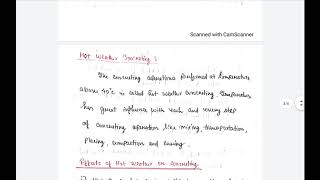 Scanned with CamScanner
Hot weather Concreting :
The concreting operations performed at temperature
above 40°c is called hot weather concreting. Temperature
has great influence with each and every step
of concreting operation like mixing, transportation,
placing, compaction and curing.
3/6
Effects of Hot weather on concreting